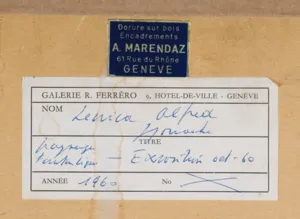 Dorure sur bois
Encadrements
A. MARENDAZ
61 Rue du Rhône
GENÈVE
GALERIE R. FERRÉRO 9, HOTEL-DE-VILLE - GENÈVE
NOM Lenica Alfred
gouache
paysage TITRE
fantastique — Exposition oct-60
ANNÉE 1960 No